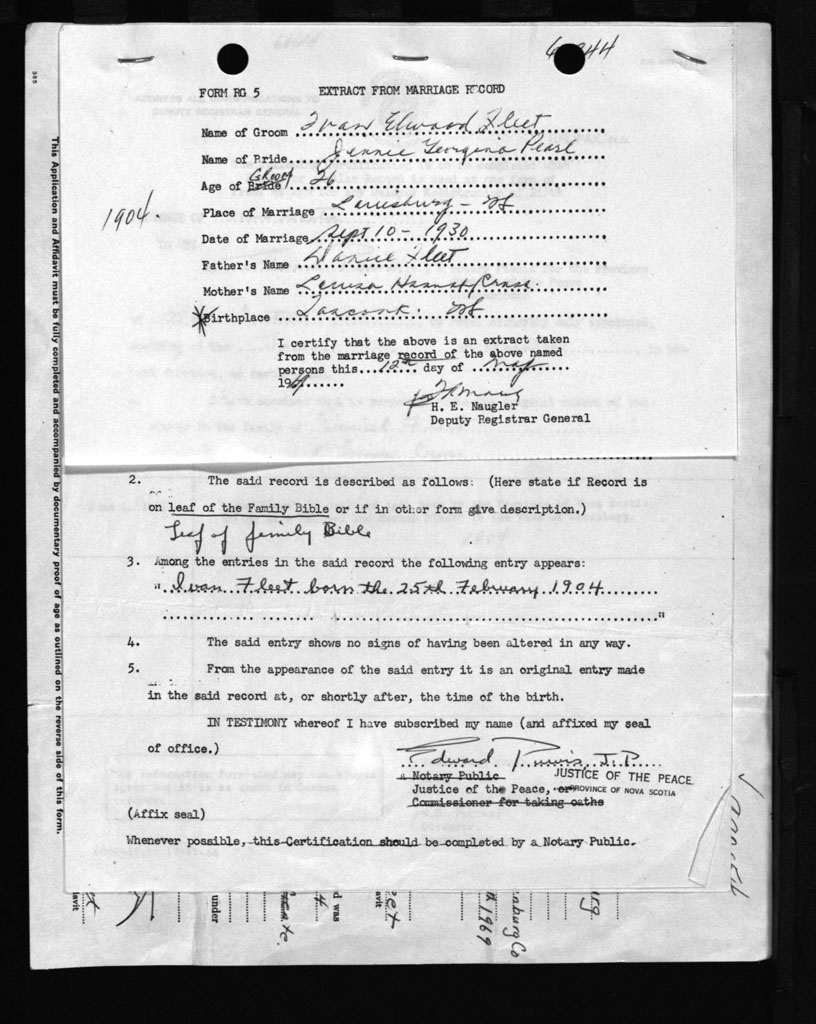 FORM RG 5 EXTRACT FROM MARRIAGE RECORD
Name of Groom Ivan Elwood Fleet
Name of Bride Jennie Georgina Pearl
Age of Bride Groom 26
1904.
Place of Marriage Louisburg - NS
Date of Marriage Sept 10 - 1930
Father's Name Daniel Fleet
Mother's Name Louisa Hannah
Birthplace NS
I certify that the above is an extract taken
from the marriage record of the above named
persons this 12th day of May
1969
H. E. Naugler
Deputy Registrar General
2. The said record is described as follows: (Here state if Record is
on leaf of the Family Bible or if in other form give description.)
Leaf of family Bible
3. Among the entries in the said record the following entry appears:
" Ivan Fleet born the 25th February 1904
"
4. The said entry shows no signs of having been altered in any way.
5. From the appearance of the said entry it is an original entry made
in the said record at, or shortly after, the time of the birth.
IN TESTIMONY whereof I have subscribed my name (and affixed my seal
of office.)
Edward Purvis J.P.
a Notary Public JUSTICE OF THE PEACE
Justice of the Peace, or PROVINCE OF NOVA SCOTIA
Commissioner for taking oaths
(Affix seal)
Whenever possible, this Certification should be completed by a Notary Public.
This Application and Affidavit must be fully completed and accompanied by documentary proof of age as outlined on the reverse side of this form.
under
d was
1969